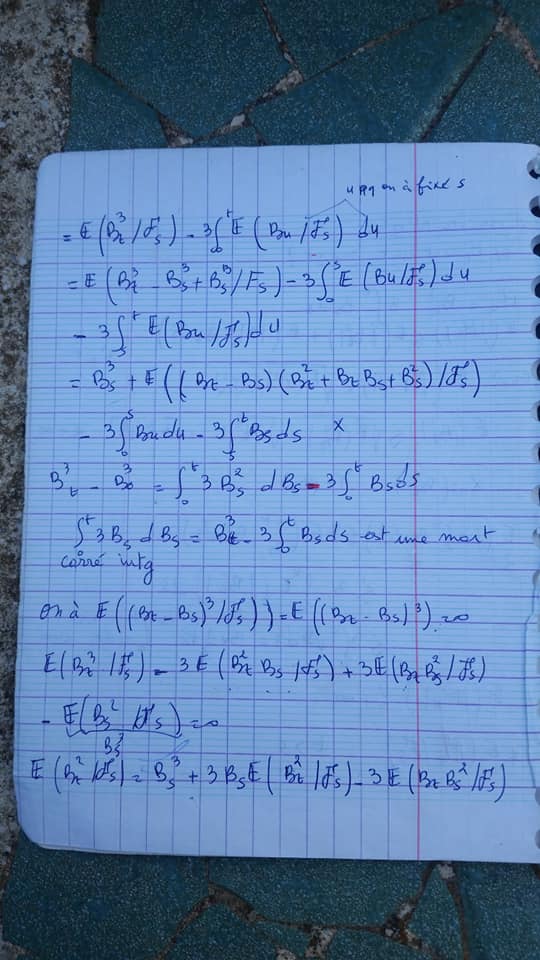 on a fixé s
= E(B_t^3 / F_s) - 3∫_0^t E(B_u / F_s) du
= E(B_t^3 - B_s^3 + B_s^3 / F_s) - 3∫_0^s E(B_u / F_s) du
- 3∫_s^t E(B_u / F_s) du
= B_s^3 + E((B_t - B_s)(B_t^2 + B_t B_s + B_s^2) / F_s)
- 3∫_0^s B_u du - 3∫_s^t B_s ds x
B_t^3 - B_0^3 = ∫_0^t 3 B_s^2 dB_s - 3∫_0^t B_s ds
∫_0^t 3 B_s dB_s = B_t^3 - 3∫_0^t B_s ds est une mart
carré intg
on à E((B_t - B_s)^3 / F_s)) = E((B_t - B_s)^3) = 0
E(B_t^3 / F_s) - 3 E(B_t^2 B_s / F_s) + 3 E(B_t B_s^2 / F_s)
- E(B_s^2 / F_s) = 0
B_s^3
E(B_t^2 / F_s) = B_s^3 + 3 B_s E(B_t^2 / F_s) - 3 E(B_t B_s^2 / F_s)